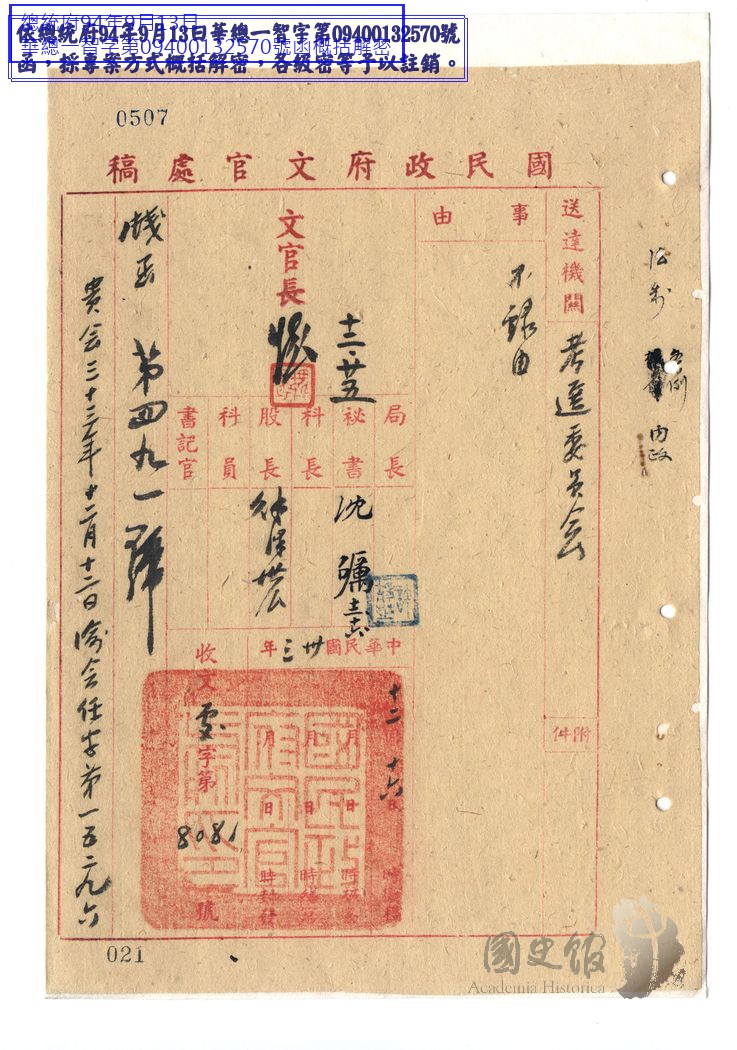 總統府94年9月13日
華總一智字第09400132570號函概括解密
依總統府94年9月13日華總一智字第09400132570號
函，採專案方式概括解密，各級密等予以註銷。
0507
國民政府文官處稿
送達機關
考選委員會
附件
事由
不錄由
文官長
十二·廿五
局長
祕書
沈
科長
股長
科員
書記官
中華民國卅三年
十二月十六日
月 日 時
月 日 時
月 日 時
收文處字第8081號
箋函 第四九一號
貴会三十三年十二月十二日渝会任字第一五二九六
內政
021
國史館
Academia Historica